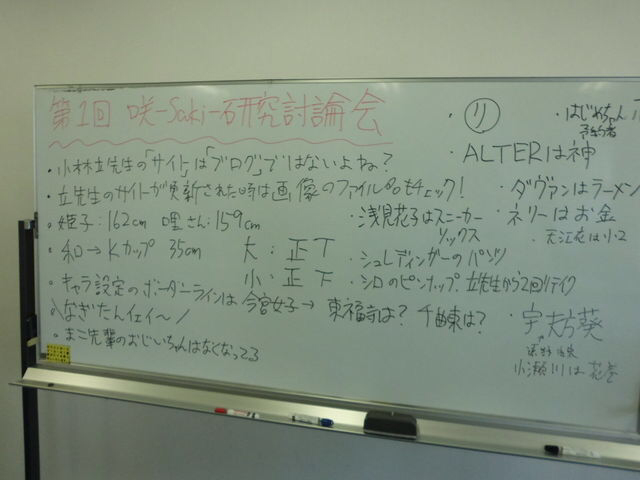 第1回 咲-Saki-研究討論会
・小林立先生の「サイト」は「ブログ」ではないよね?
・立先生のサイトが更新された時は画像のファイル名もチェック!
・姫子:162cm 哩さん:159cm
・和→Kカップ 35cm 大:正丅
小:正下
・キャラ設定のボーダーラインは 今宮女子→ 東福寺は? 千曲東は?
\なぎたんイェイ〜/
・まこ先輩のおじいちゃんはなくなってる
・浅見花子はスニーカー
ソックス
・シュレディンガーのパンツ
・シロのピンナップ、立先生から2回リテイク
リ
・ALTERは神
・はじめちゃん
予約者
・ダヴァンはラーメン
・ネリーはお金
天江衣は小2
・宇夫方葵
小瀬川は 花巻